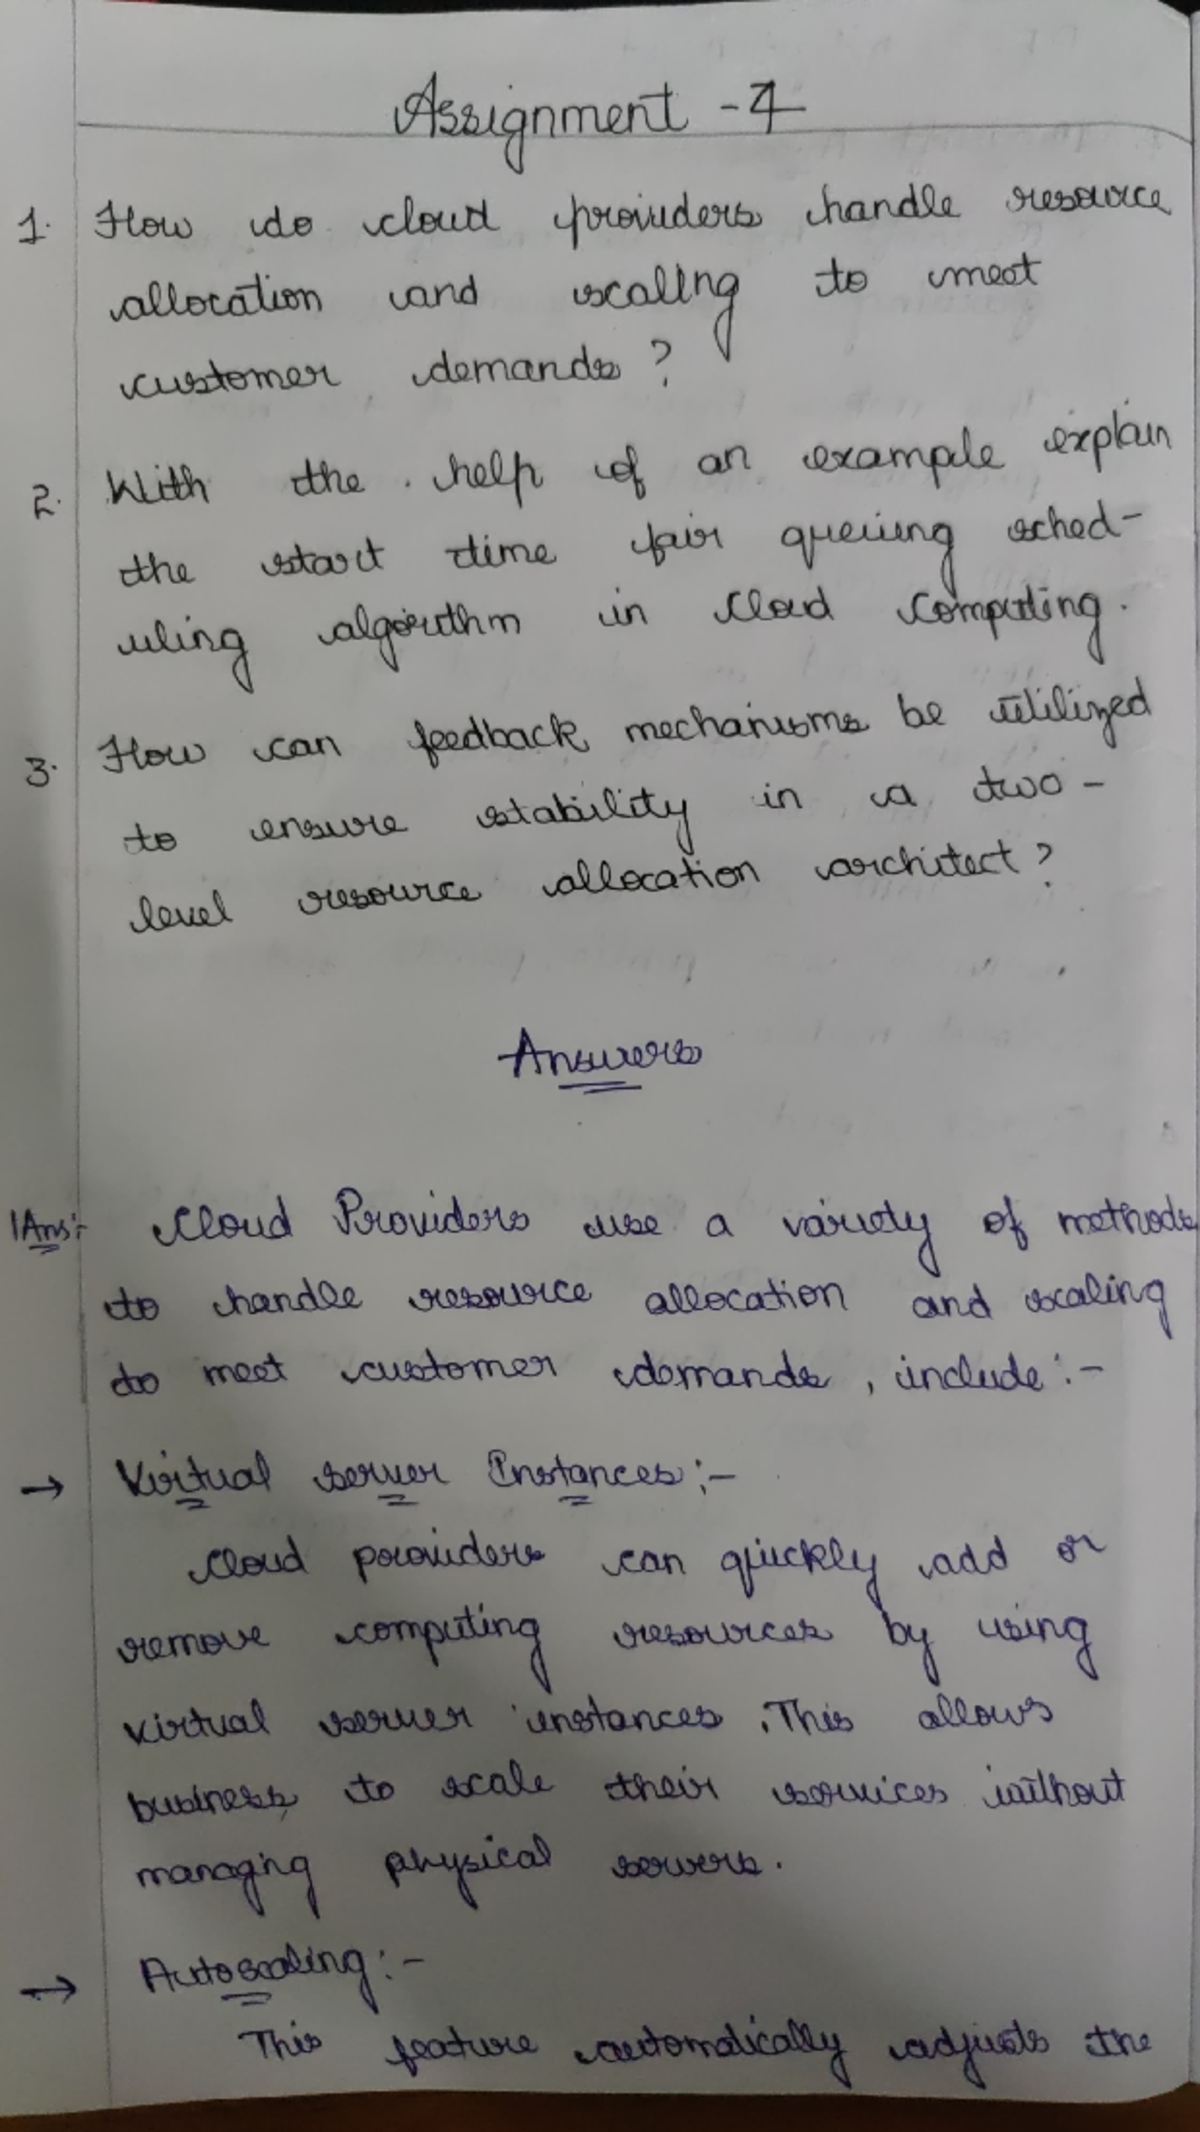 Assignment - 4
1. How do cloud providers handle resource
allocation and scaling to meet
customer demands?
2. With the help of an example explain
the start time fair queuing sched-
uling algorithm in cloud computing.
3. How can feedback mechanisms be utilized
to ensure stability in a two-
level resource allocation architect?
Answers
1Ans:- Cloud Providers use a variety of methods
to handle resource allocation and scaling
to meet customer demands, include:-
→ Virtual server Instances:-
Cloud providers can quickly add or
remove computing resources by using
virtual server instances. This allows
business to scale their services without
managing physical servers.
→ Autoscaling:-
This feature automatically adjusts the